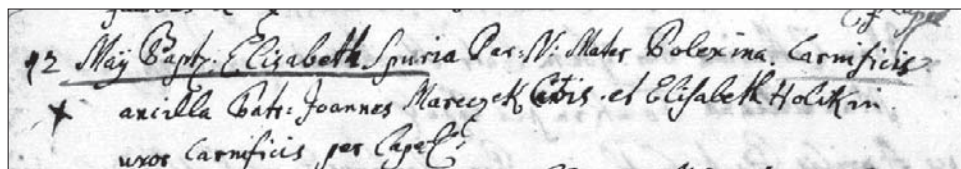 12 Maÿ Baptz: Elisabeth Spuria Par: N: Mater Polexina Carnificis
ancilla Patr: Joannes Mareczek et Elisabeth Holikin
uxor Carnificis per Capel: